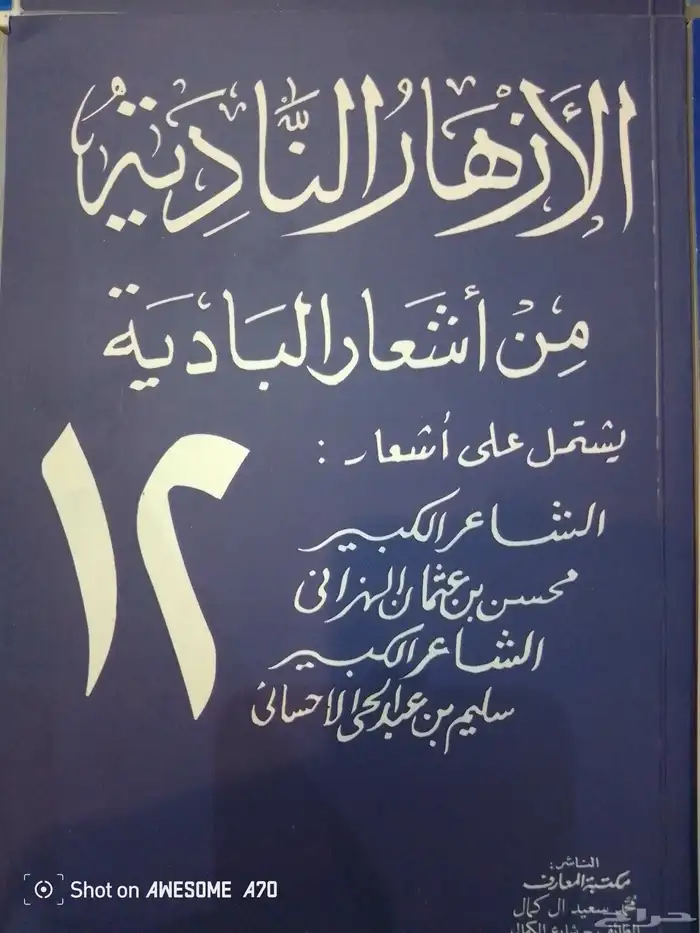 الأزهار النَّادِيَةُ
مِنْ أَشعَار البَادية
١٢
يشتمل على أشعار :
الشاعر الكبير
محسن بن عثمان الهزاني
الشاعر الكبير
سليم بن عبد الحي الاحسائي
الناشر:
مكتبة المعارف
محمد سعيد ال كمال
الطائف - شارع الكمال
حراج
Shot on AWESOME A70